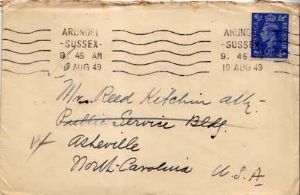 ARUNDEL
-SUSSEX-
9. 45 AM
10 AUG 49
ARUNDEL
-SUSSEX-
9. 45 AM
10 AUG 49
Mr. Reed Kitchin atty.
Public Service Bldg.
Asheville
North-Carolina
U.S.A